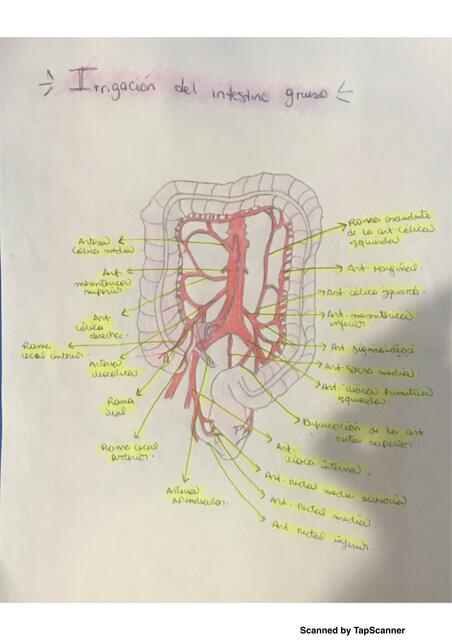 Irrigación del intestino grueso
Arteria
Cólica media
Art.
mesentérica
superior
Art
cólica
derecha
Rama
cecal anterior
Arteria
ileocólica
Rama
ileal
Rama cecal
posterior
Arteria
apendicular
Rama ascendente
de la art cólica
izquierda
Art marginal
Art cólica izquierda
Art. mesentérica
inferior
Art sigmoideas
Art sacra media
Art. ilíaca primitiva
izquierda
Bifurcación de la art
rectal superior
Art.
ilíaca interna
Art rectal media accesoria
Art. rectal media
Art rectal inferior
Scanned by TapScanner